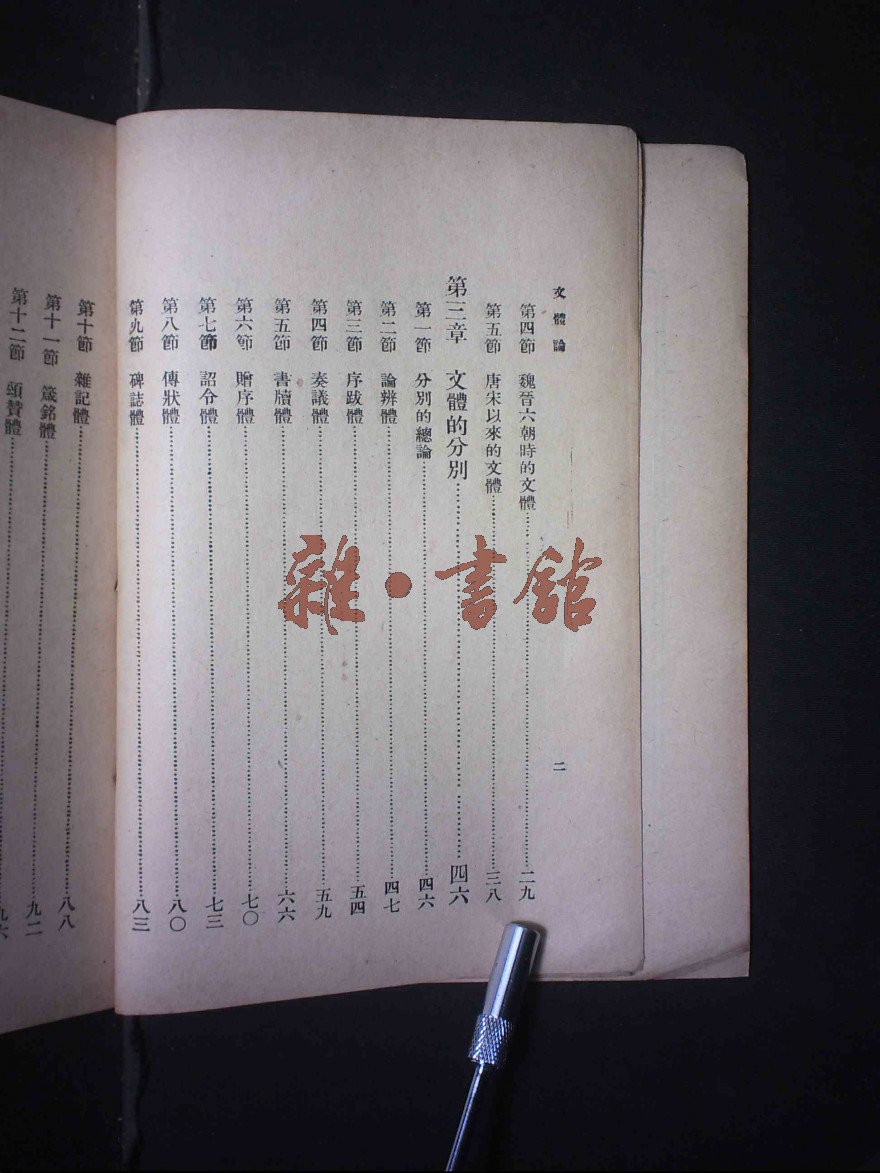 文體論
二
第四節 魏晉六朝時的文體 二九
第五節 唐宋以來的文體 三八
第三章 文體的分別 四六
第一節 分別的總論 四六
第二節 論辨體 四七
第三節 序跋體 五四
第四節 奏議體 五九
第五節 書牘體 六六
第六節 贈序體 七〇
第七節 詔令體 七三
第八節 傳狀體 八〇
第九節 碑誌體 八三
第十節 雜記體 八八
第十一節 箴銘體 九二
第十二節 頌贊體 九六
雜·書館